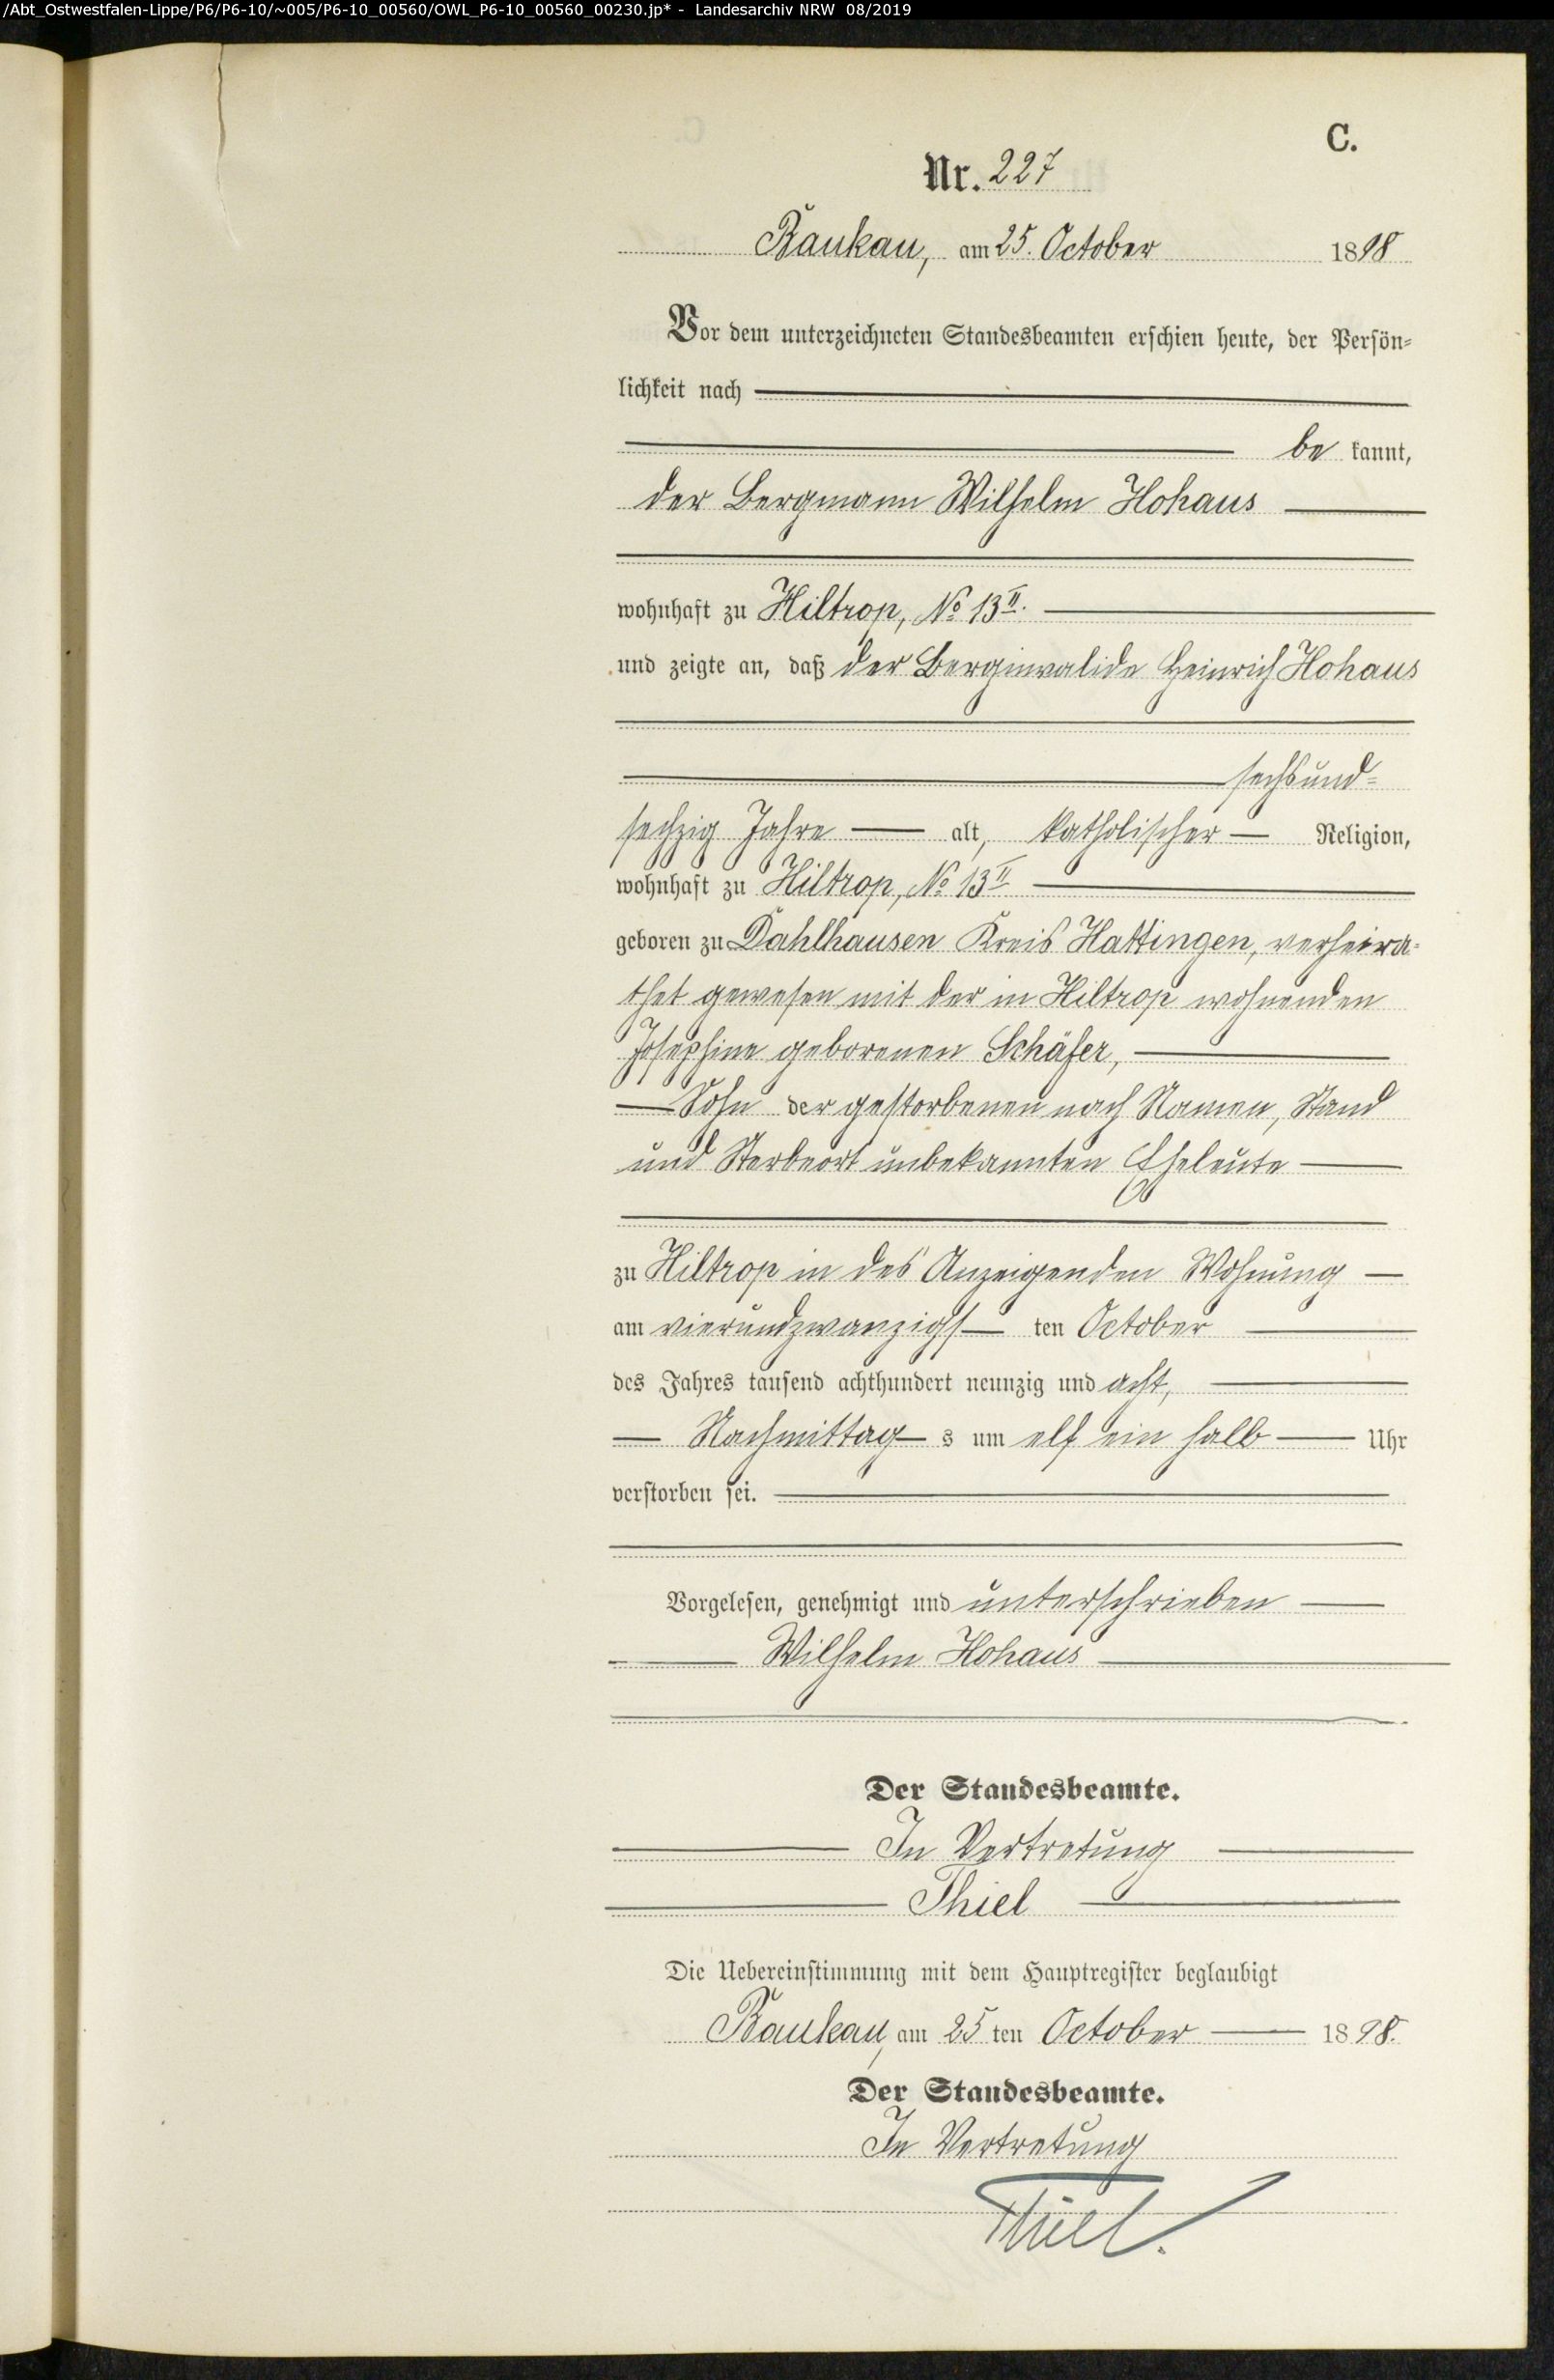 /Abt_Ostwestfalen-Lippe/P6/P6-10/~005/P6-10_00560/OWL_P6-10_00560_00230.jp* - Landesarchiv NRW 08/2019
C.
Nr. 227
Baukau, am 25. October 1898
Vor dem unterzeichneten Standesbeamten erschien heute, der Persön-
lichkeit nach
be kannt,
der Bergmann Wilhelm Hohaus
wohnhaft zu Hiltrop, No 13 II.
und zeigte an, daß der Berginvalide Heinrich Hohaus
sechsund-
sechzig Jahre alt, katholischer Religion,
wohnhaft zu Hiltrop, No 13 II
geboren zu Dahlhausen Kreis Hattingen, verheira-
thet gewesen mit der in Hiltrop wohnenden
Josephine geborenen Schäfer,
Sohn der gestorbenen nach Namen, Stand
und Sterbeort unbekannten Eheleute
zu Hiltrop in des Anzeigenden Wohnung
am vierundzwanzigs ten October
des Jahres tausend achthundert neunzig und acht,
Nachmittag s um elf ein halb Uhr
verstorben sei.
Vorgelesen, genehmigt und unterschrieben
Wilhelm Hohaus
Der Standesbeamte.
In Vertretung
Thiel
Die Uebereinstimmung mit dem Hauptregister beglaubigt
Baukau, am 25 ten October 1898.
Der Standesbeamte.
In Vertretung
Thiel.